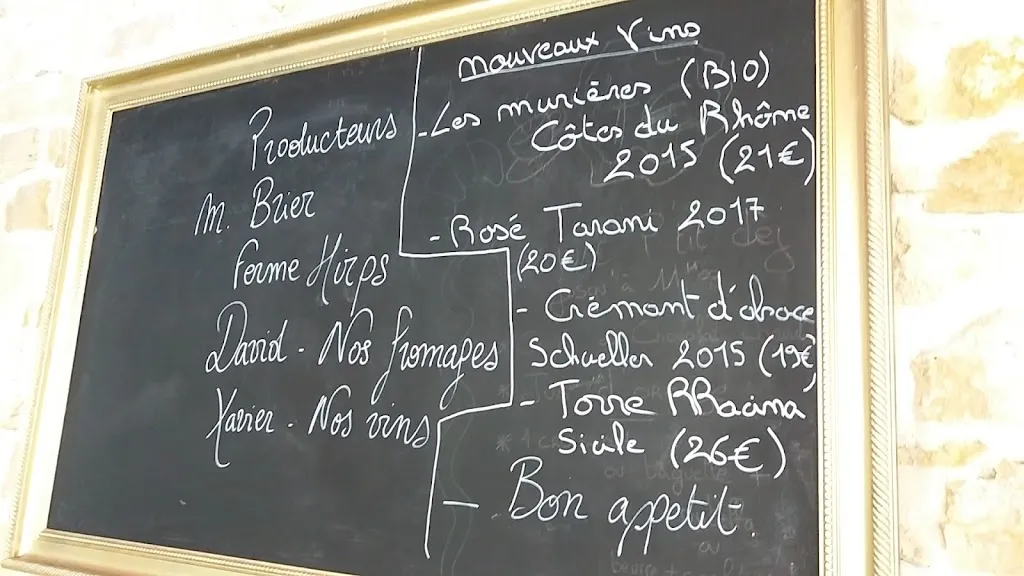 Producteurs
M. Brier
Ferme Hirps
David - Nos fromages
Xavier - Nos vins
Nouveaux Vins
- Les murières (BIO)
Côtes du Rhône
2015 (21€)
- Rosé Tarani 2017
(20€)
- Crémant d'alsace
Schueller 2015 (19€)
- Torre RRacina
Sicile (26€)
- Bon appetit.